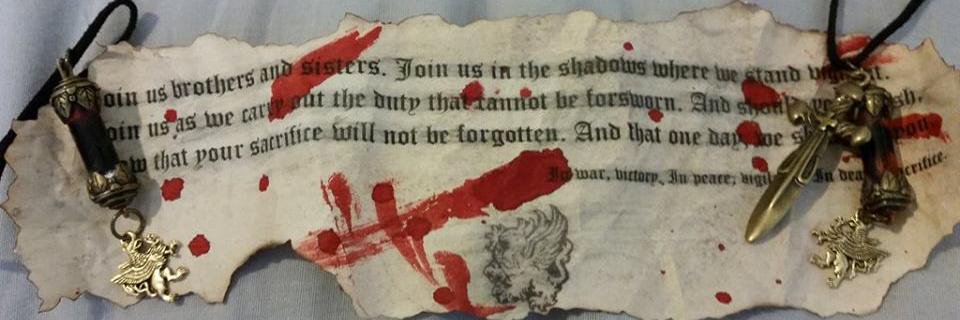 oin us brothers and sisters. Join us in the shadows where we stand vigilant.
oin us as we carry out the duty that cannot be forsworn. And should
w that your sacrifice will not be forgotten. And that one day, we you.
In war, victory, In peace, In sacrifice.